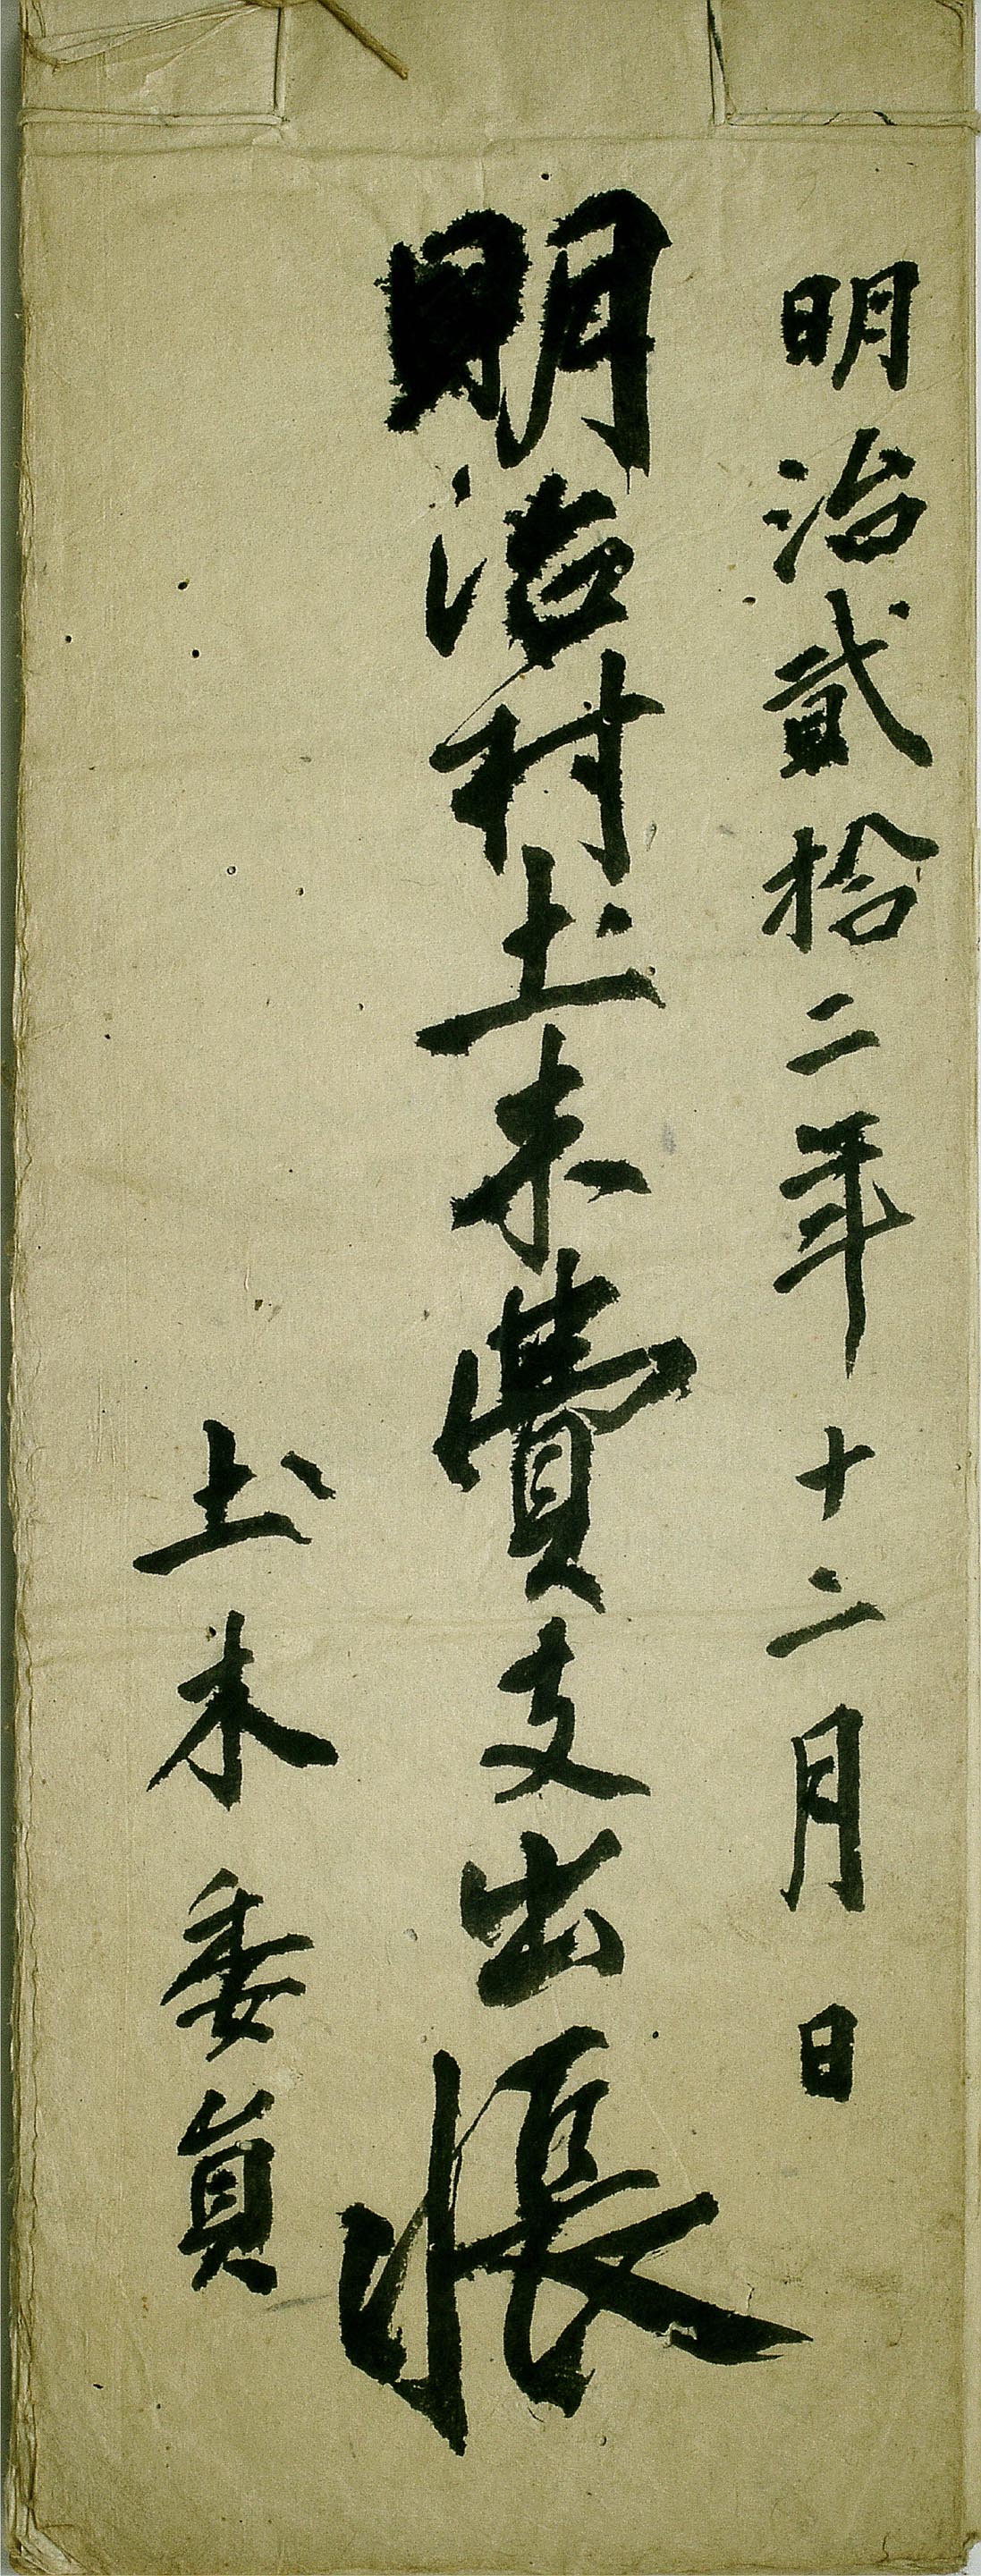 明治貳拾二年十二月 日
明治村土木費支出帳
土木委員